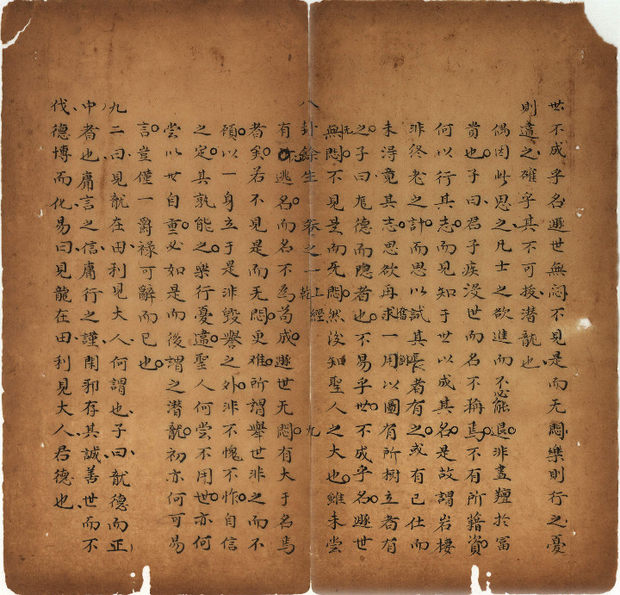 世不成乎名遯世無悶不見是而无悶樂則行之憂
則違之確乎其不可拔潛龍也
偶因此思之凡士之欲進而不能退非盡羶於富
貴也子曰君子疾沒世而名不稱焉不有所藉資
何以行其志而見知于世以成其名是故謂岩棲
非終老之計而思以試其長者有之或有已仕而
未得竟其志思欲再求一用以圖有所樹立者有
之子曰龍德而隱者也不易乎世不成乎名遯世
無悶不見是而无悶然後知聖人之大也雖未嘗
八卦餘生 卷之一 乾 上經 九
有逃名而名不為苟成遯世无悶有大于名焉
者矣若不見是而无悶更难所謂舉世非之而不
顧以一身立于是非毀譽之外非不愧不怍自信
之定其孰能之樂行憂違聖人何嘗不用世亦何
嘗以世自重必如是而後謂之潛龍初亦何可易
言豈僅一爵祿可辭而已也
九二曰見龍在田利見大人何謂也子曰龍德而正
中者也庸言之信庸行之謹閑邪存其誠善世而不
伐德博而化易曰見龍在田利見大人君德也